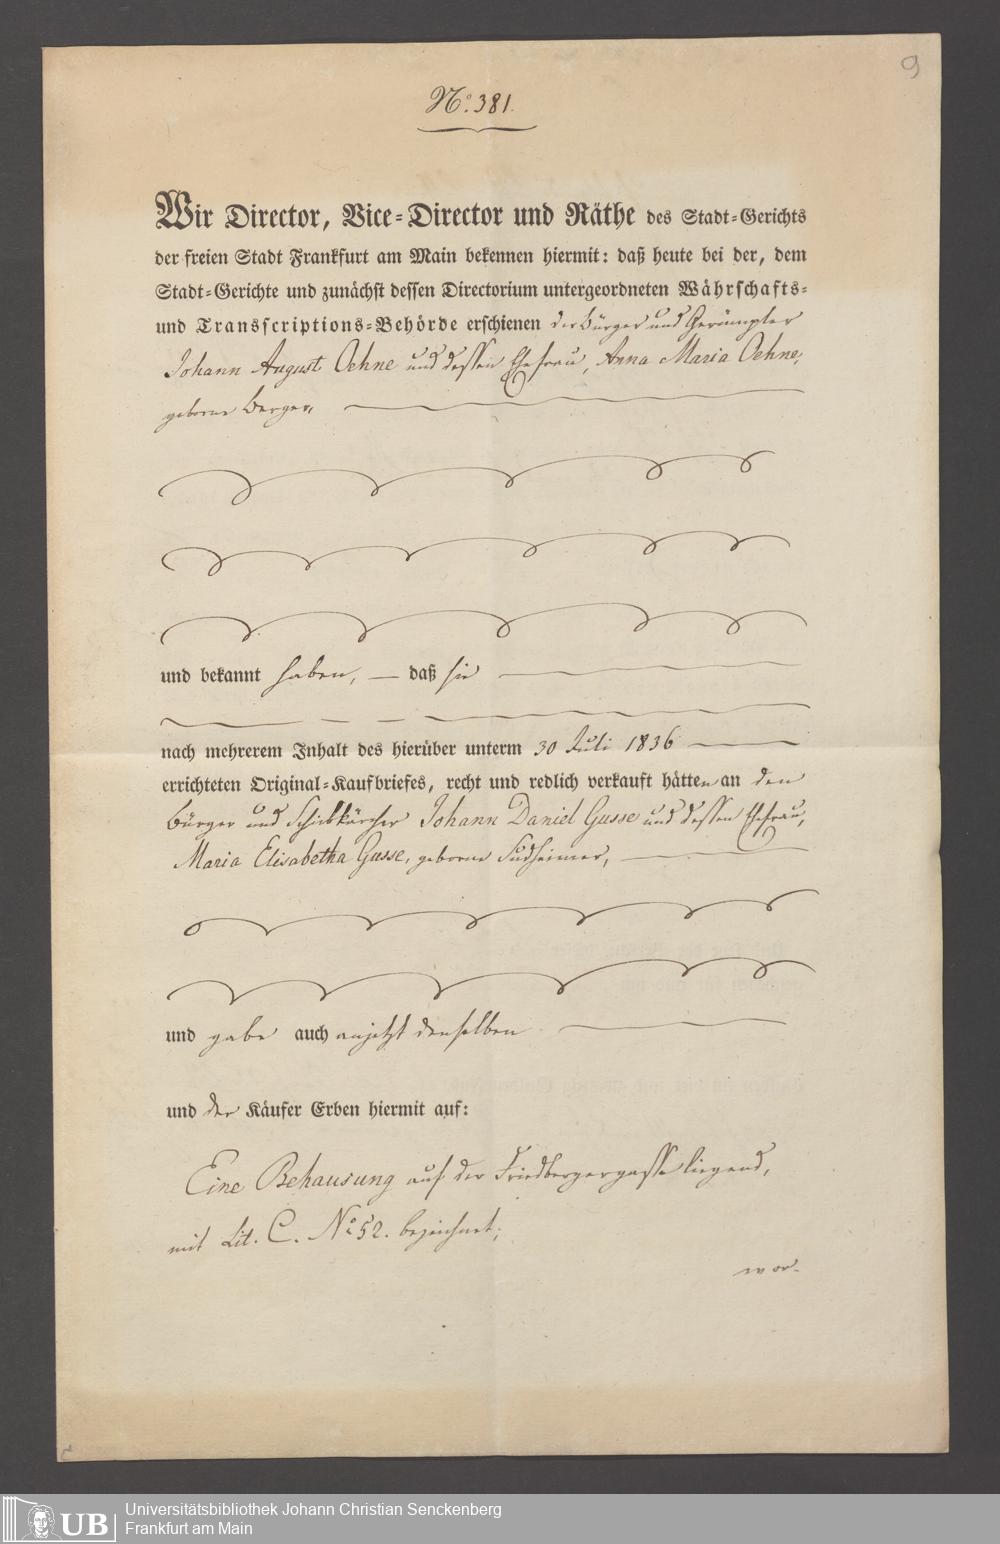 9
No. 381.
Wir Director, Vice-Director und Räthe des Stadt-Gerichts
der freien Stadt Frankfurt am Main bekennen hiermit: daß heute bei der, dem
Stadt-Gerichte und zunächst dessen Directorium untergeordneten Währschafts-
und Transscriptions-Behörde erschienen der Bürger und Gerümpler
Johann August Oehne und dessen Ehefrau, Anna Maria Oehne,
geborne Berger,
und bekannt haben, — daß sie
nach mehrerem Inhalt des hierüber unterm 30 Juli 1836
errichteten Original-Kaufbriefes, recht und redlich verkauft hätten an den
Bürger und Schiebkärcher Johann Daniel Gusse und dessen Ehefrau,
Maria Elisabetha Gusse, geborne Sudheimer,
und gabe auch anjetzt denselben
und der Käufer Erben hiermit auf:
Eine Behausung auf der Friedbergergasse liegend,
mit Lit. C. No 52. bezeichnet;
wor-
UB
Universitätsbibliothek Johann Christian Senckenberg
Frankfurt am Main